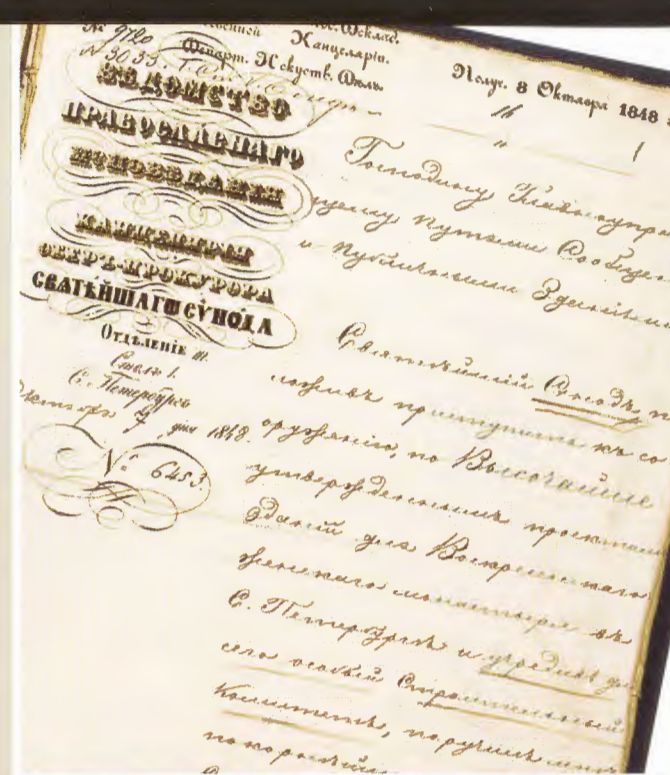 № 9720
№ 3033.
Канцеляріи.
Департ. Искуств. Дѣлъ
Получ. 8 Октября 1848
ВѢДОМСТВО
ПРАВОСЛАВНАГО
ИСПОВѢДАНІЯ
КАНЦЕЛЯРІЯ
ОБЕРЪ-ПРОКУРОРА
СВЯТѢЙШАГѠ СѴНОДА
Отдѣленіе III.
Столъ 1.
С. Петербургъ
Октября 7 дня 1848.
№ 6453.
Господину Главноупра
ющему Путями Сообщен
и Публичными Зданіями
Святѣйшій Сѵнодъ, п
ложивъ приступить къ со
оруженію, по Высочайше
утвержденнымъ проектамъ
зданій для Воскресенскаго
женскаго монастыря въ
С. Петербургѣ и учредивъ для
сего особый Строительный
Комитетъ, поручилъ мнѣ
покорнѣйше